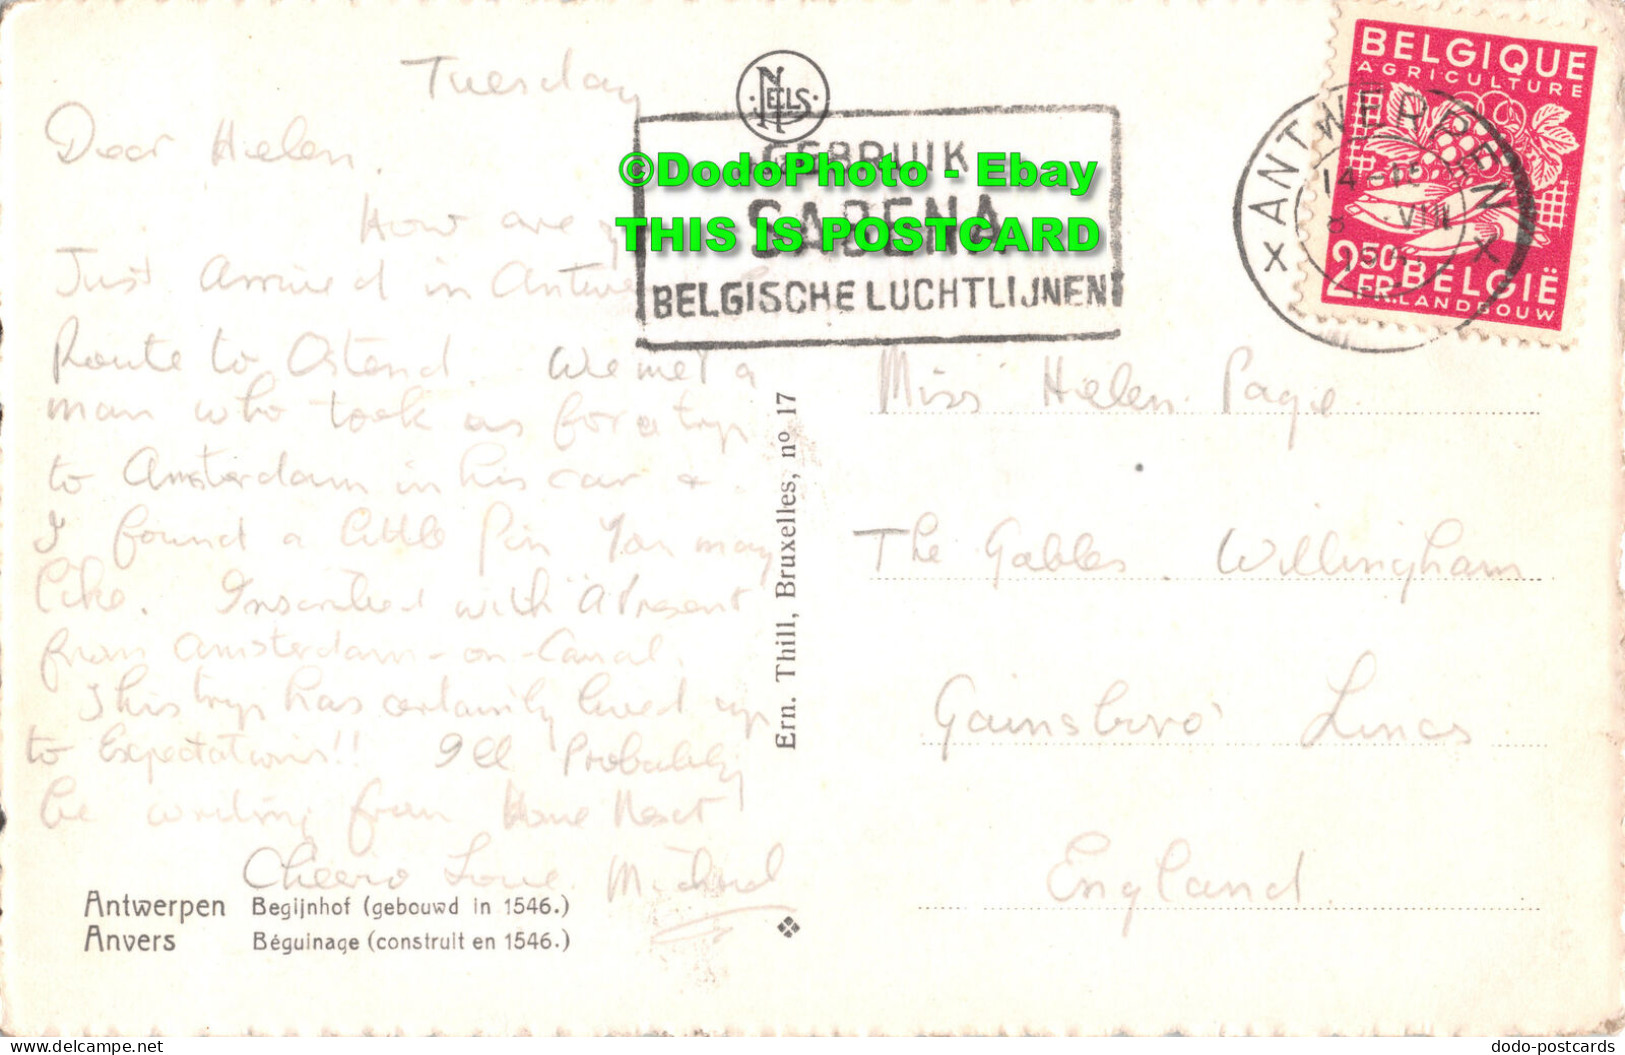 Tuesday
Dear Helen,
How are
Just Arrived in
Route to Ostend. We met a
man who took us for a trip
to Amsterdam in his car &
I found a little pin You may
like. Inscribed with "A Present
from Amsterdam-on-Canal.
This trip has certainly lived up
to Expectations!! I'll Probably
be writing from Home Next!
Cheerio Love Michael
Antwerpen Begijnhof (gebouwd in 1546.)
Anvers Béguinage (construit en 1546.)
NELS
GEBRUIK
SABENA
BELGISCHE LUCHTLIJNEN
©DodoPhoto - Ebay
THIS IS POSTCARD
Ern. Thill, Bruxelles, nº 17
BELGIQUE
AGRICULTURE
2.50 FR. BELGIË
LANDBOUW
x ANTWERPEN x
VIII
Miss Helen Page
The Gables. Willingham
Gainsboro' Lincs
England
delcampe.net
dodo-postcards